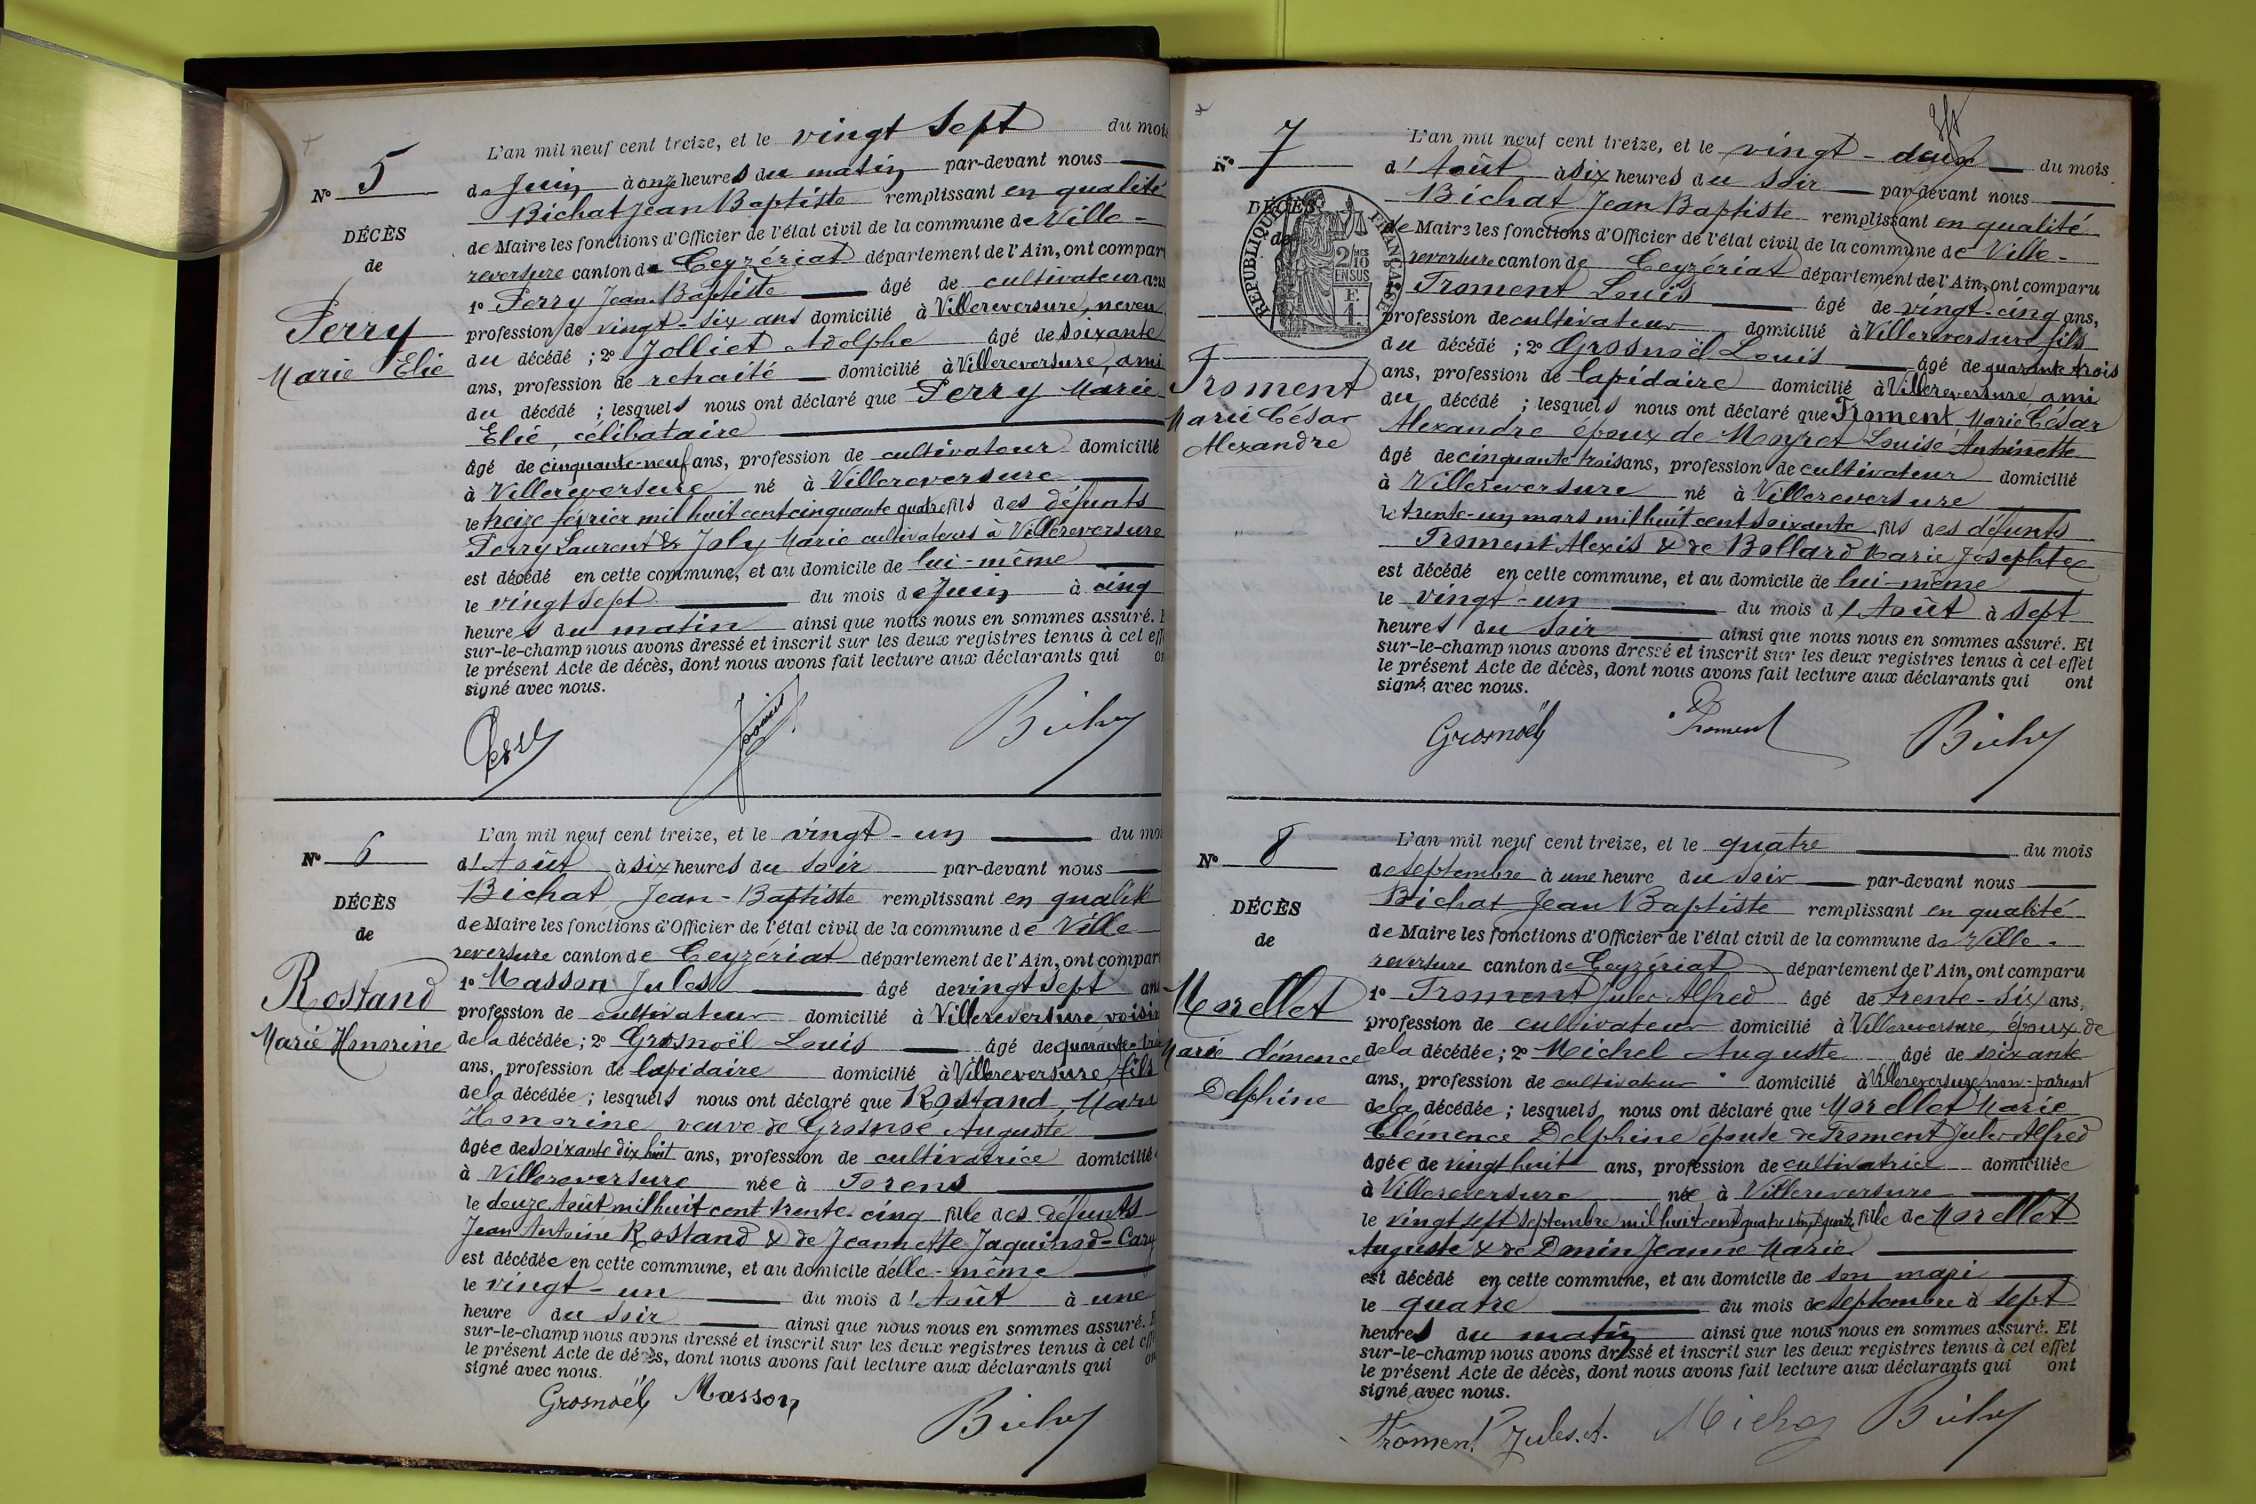 L'an mil neuf cent treize, et le vingt sept du mois
N° 5
de Juin à onze heures du matin par-devant nous
Bichat Jean Baptiste remplissant en qualité
DÉCÈS
de Maire les fonctions d'Officier de l'état civil de la commune de Ville-
de
reversure canton de Ceyzériat département de l'Ain, ont compar
1° Perry Jean-Baptiste âgé de cultivateur ans
Perry
profession de vingt-six ans domicilié à Villereversure, neveu
Marie Elie
du décédé ; 2° Jolliet Adolphe âgé de soixante
ans, profession de retraité domicilié à Villereversure, ami
du décédé ; lesquels nous ont déclaré que Perry Marie
Elie, célibataire
âgé de cinquante-neuf ans, profession de cultivateur domicilié
à Villereversure né à Villereversure
le treize février mil huit cent cinquante quatre fils des défunts
Perry Laurent & Joly Marie cultivateurs à Villereversure
est décédé en cette commune, et au domicile de lui-même
le vingt sept du mois de Juin à cinq
heures du matin ainsi que nous nous en sommes assuré. E
sur-le-champ nous avons dressé et inscrit sur les deux registres tenus à cet eff
le présent Acte de décès, dont nous avons fait lecture aux déclarants qui on
signé avec nous.
L'an mil neuf cent treize, et le vingt-un du moi
N° 6
d'Août à six heures du soir par-devant nous
Bichat Jean-Baptiste remplissant en qualité
DÉCÈS
de Maire les fonctions d'Officier de l'état civil de la commune de Ville
de
reversure canton de Ceyzériat département de l'Ain, ont compar
Rostand
1° Masson Jules âgé de vingt sept ans
profession de cultivateur domicilié à Villereversure, voisin
Marie Honorine
de la décédée ; 2° Grosnoël Louis âgé de quarante-trois
ans, profession de lapidaire domicilié à Villereversure, fils
de la décédée ; lesquels nous ont déclaré que Rostand, Marie
Honorine veuve de Grosnoe Auguste
âgée de soixante dix huit ans, profession de cultivatrice domiciliée
à Villereversure née à Torens
le douze Août mil huit cent trente-cinq fille des défunts
Jean Antoine Rostand & de Jeannette Jaquinod-Cary
est décédée en cette commune, et au domicile d'elle-même
le vingt-un du mois d'Août à une
heure du soir ainsi que nous nous en sommes assuré. E
sur-le-champ nous avons dressé et inscrit sur les deux registres tenus à cet eff
le présent Acte de décès, dont nous avons fait lecture aux déclarants qui on
signé avec nous.
Grosnoël Masson
L'an mil neuf cent treize, et le vingt-deux du mois
N° 7
d'Août à six heures du soir par-devant nous
Bichat Jean Baptiste remplissant en qualité
DÉCÈS
de
RÉPUBLIQUE FRANÇAISE
2/10
EN SUS
de Maire les fonctions d'Officier de l'état civil de la commune de Ville-
reversure canton de Ceyzériat département de l'Ain, ont comparu
Froment Louis âgé de vingt-cinq ans,
profession de cultivateur domicilié à Villereversure fils
du décédé ; 2° Grosnoël Louis âgé de quarante trois
Froment
ans, profession de lapidaire domicilié à Villereversure ami
Marie César
du décédé ; lesquels nous ont déclaré que Froment Marie César
Alexandre
Alexandre époux de Moyret Louise Antoinette
âgé de cinquante trois ans, profession de cultivateur domicilié
à Villereversure né à Villereversure
le trente-un mars mil huit cent soixante fils des défunts
Froment Alexis & de Bollard Marie Josephte
est décédé en cette commune, et au domicile de lui-même
le vingt-un du mois d'Août à sept
heures du soir ainsi que nous nous en sommes assuré. Et
sur-le-champ nous avons dressé et inscrit sur les deux registres tenus à cet effet
le présent Acte de décès, dont nous avons fait lecture aux déclarants qui ont
signé avec nous.
Grosnoël Froment
L'an mil neuf cent treize, et le quatre du mois
N° 8
de septembre à une heure du soir par-devant nous
Bichat Jean Baptiste remplissant en qualité
DÉCÈS
de Maire les fonctions d'Officier de l'état civil de la commune de Ville-
de
reversure canton de Ceyzériat département de l'Ain, ont comparu
Morellet
1° Froment Jules Alfred âgé de trente-six ans,
profession de cultivateur domicilié à Villereversure, époux de
Marie Clémence
de la décédée ; 2° Michel Auguste âgé de soixante
Delphine
ans, profession de cultivateur domicilié à Villereversure non-parent
de la décédée ; lesquels nous ont déclaré que Morellet Marie
Clémence Delphine épouse de Froment Jules Alfred
âgée de vingt huit ans, profession de cultivatrice domiciliée
à Villereversure née à Villereversure
le vingt sept septembre mil huit cent quatre vingt quatre fille de Morellet
Auguste & de Donin Jeanne Marie
est décédé en cette commune, et au domicile de son mari
le quatre du mois de septembre à sept
heures du matin ainsi que nous nous en sommes assuré. Et
sur-le-champ nous avons dressé et inscrit sur les deux registres tenus à cet effet
le présent Acte de décès, dont nous avons fait lecture aux déclarants qui ont
signé avec nous.
Froment Jules. A.